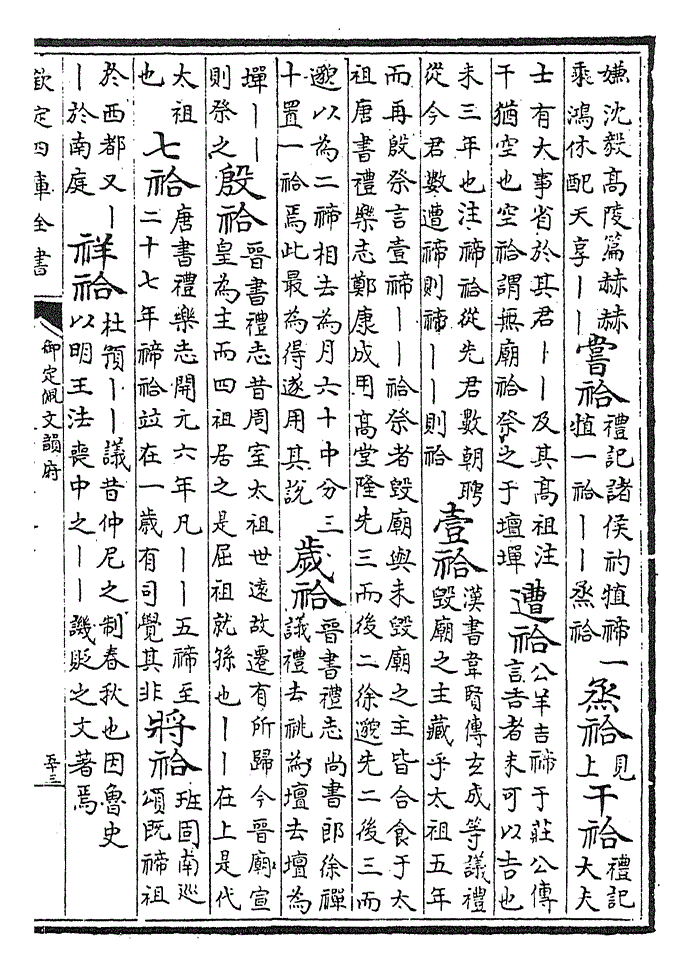 嫌沈毅髙陵篇赫赫
乘鴻休配天享丨丨
嘗祫
禮記諸侯礿犆禘一
犆一祫丨丨烝祫
烝祫
見
上
干祫
禮記
大夫
士有大事省於其君丨丨及其髙祖注
干猶空也空祫謂無廟祫祭之于壇墠
遭祫
公羊吉禘于莊公傳
言吉者未可以吉也
未三年也注禘祫從先君數朝聘
從今君數遭禘則禘丨丨則祫
壹祫
漢書韋賢傳玄成等議禮
毀廟之主藏乎太祖五年
而再殷祭言壹禘丨丨祫祭者毀廟與未毀廟之主皆合食于太
祖唐書禮樂志鄭康成用髙堂隆先三而後二徐邈先二後三而
邈以為二禘相去為月六十中分三
十置一祫焉此最為得遂用其說
歲祫
晉書禮志尚書郎徐禪
議禮去祧為壇去壇為
墠丨丨
則祭之
殷祫
晉書禮志昔周室太祖世遠故遷有所歸今晉廟宣
皇為主而四祖居之是屈祖就孫也丨丨在上是代
太祖
也
七祫
唐書禮樂志開元六年凡丨丨五禘至
二十七年禘祫竝在一歲有司覺其非
將祫
班固南巡
頌既禘祖
於西都又丨
丨於南庭
祥祫
杜預丨丨議昔仲尼之制春秋也因魯史
以明王法喪中之丨丨譏貶之文著焉
欽定四庫全書
御定佩文韻府
五十三